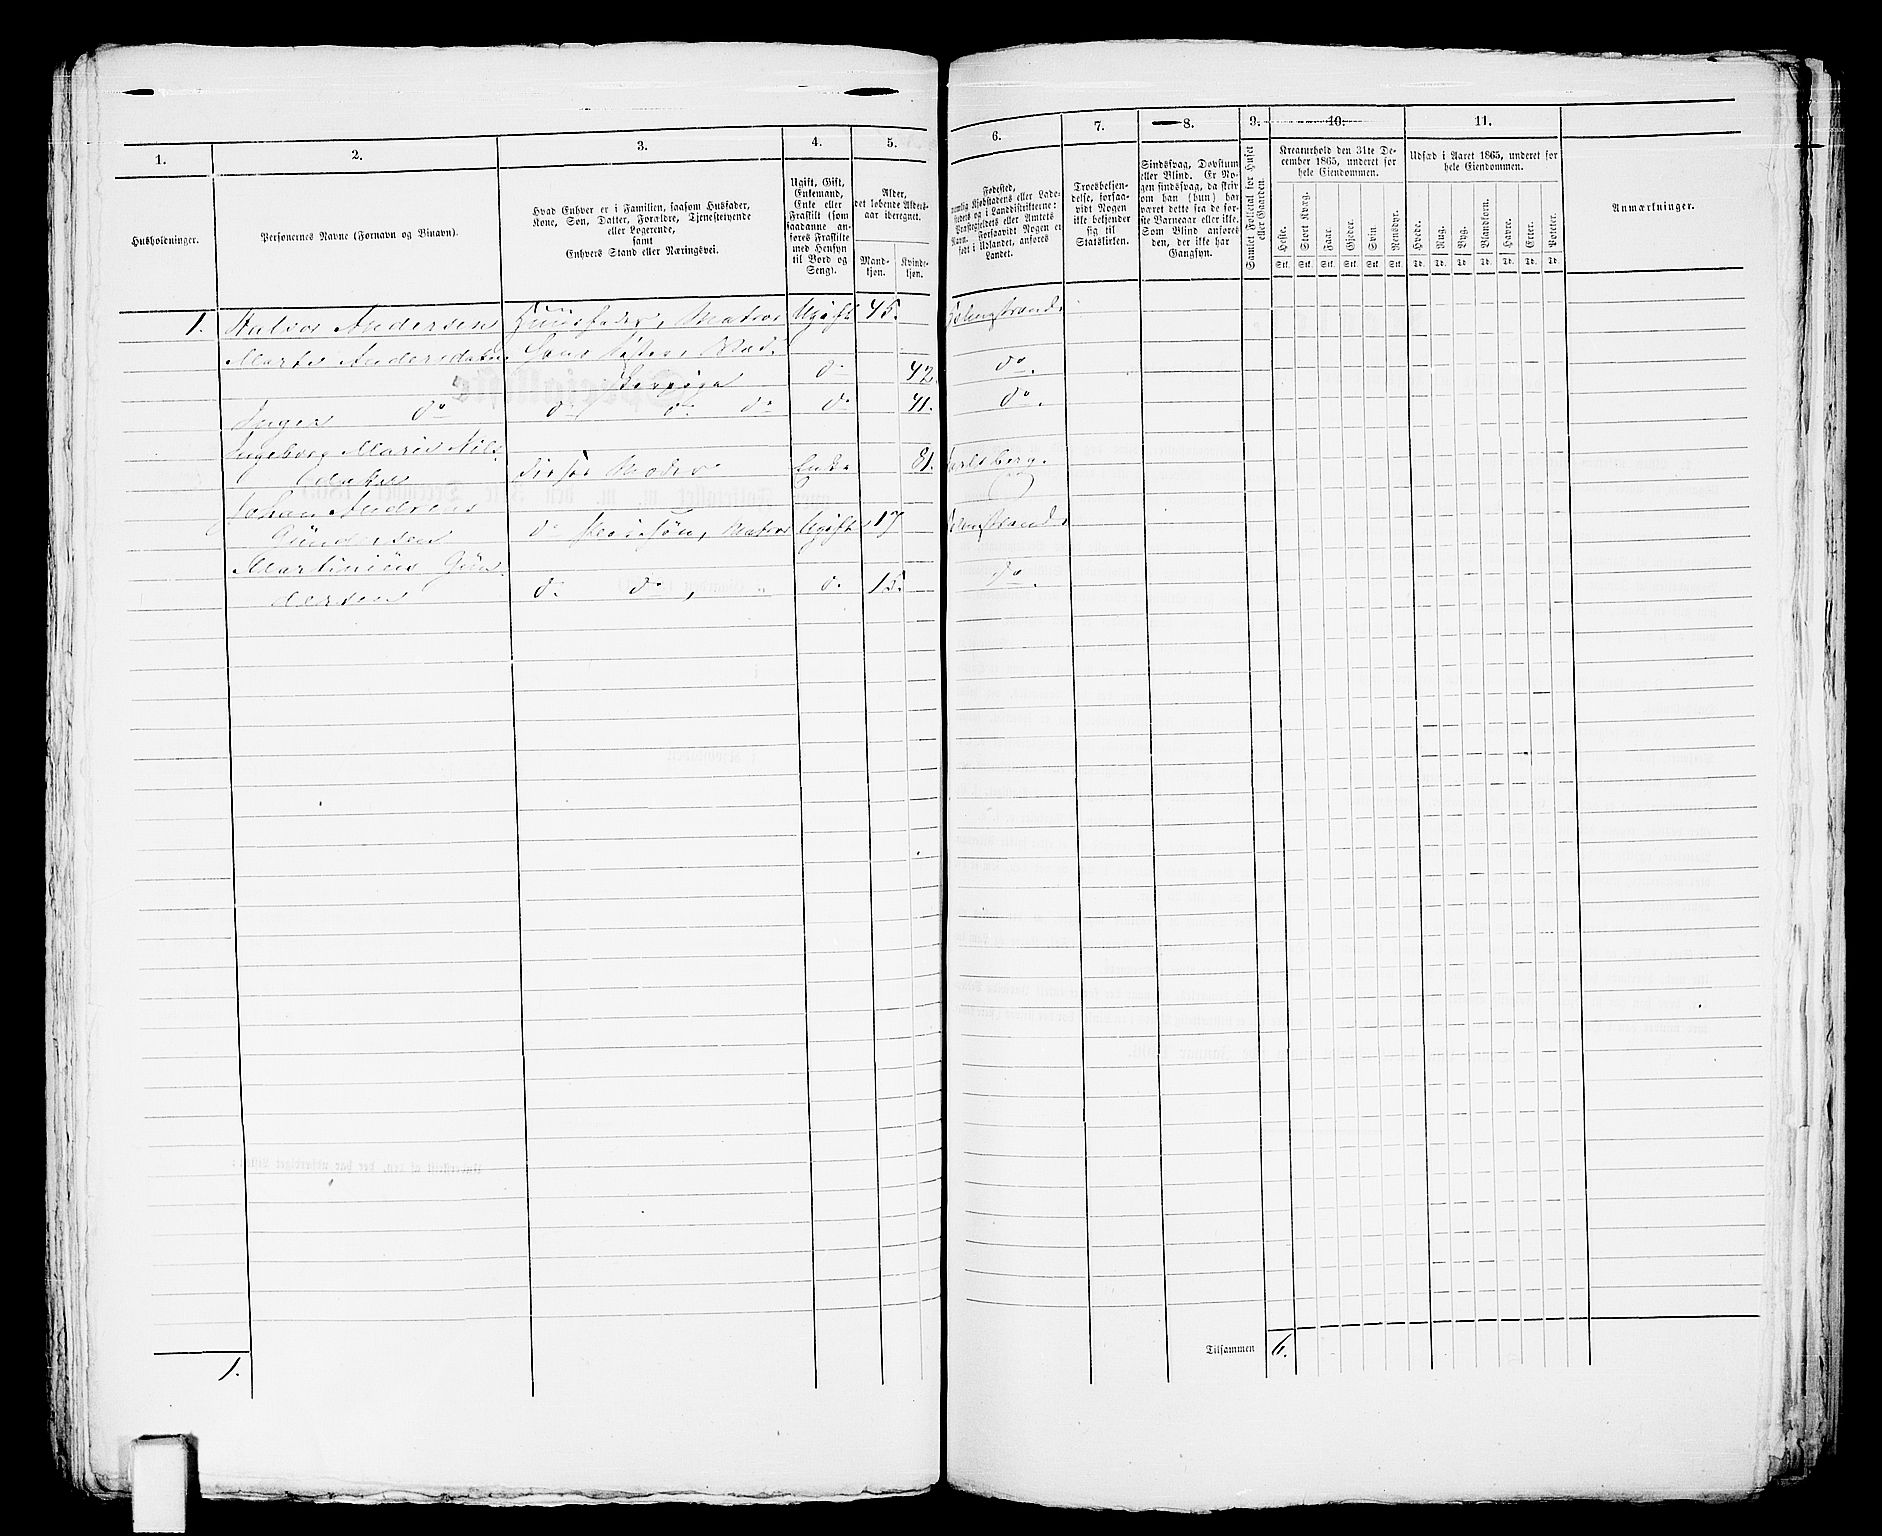 1.
2.
3.
4.
5.
6.
7.
8.
9.
10.
11.
Husholdninger.
Personernes Navne (Fornavn og Binavn).
Hvad Enhver er i Familien, saasom Husfader,
Kone, Søn, Datter, Forældre, Tjenestetyende
eller Logerende,
samt
Enhvers Stand eller Næringsvei.
Ugift, Gift,
Enkemand,
Enke eller
Fraskilt (som
saadanne an-
føres Fraskilte
med Hensyn
til Bord og
Seng).
Alder,
det løbende Alders-
aar iberegnet.
Mand-
kjøn.
Kvinde-
kjøn.
Fødested,
nemlig Kjøbstadens eller Lade-
stedets og i Landdistrikterne:
Præstegjeldets eller Amtets
Navn. Forsaavidt Nogen er
født i Udlandet, anføres
Landet.
Troesbekjen-
delse, forsaa-
vidt Nogen
ikke bekjender
sig til
Statskirken.
Sindssvag, Døvstum
eller Blind. Er No-
gen sindssvag, da skriv
om han (hun) har
været dette fra de før-
ste Barneaar eller ikke.
Som Blind anføres
den, der ikke har
Gangsyn.
Samlet Folketal for Huset
eller Gaarden.
Kreaturhold den 31te De-
cember 1865, underet for
hele Eiendommen.
Heste. Stort Kvæg. Faar. Gjeder. Svin. Rensdyr.
Stk. Stk. Stk. Stk. Stk. Stk.
Udsæd i Aaret 1865, underet for
hele Eiendommen.
Hvede. Rug. Byg. Blandkorn. Havre. Erter. Poteter.
Td. Td. Td. Td. Td. Td. Td.
Anmærkninger.
1. Halvor Andersen Huusfader, Matros Ugift 45. Holmestrand.
Marthe Andersdatter Hans Søster,
do 42. do.
Inger do do do do do 41. do.
Ingeborg Marie Nils-
datter Moder Enke 81. Jarlsberg.
Johan Andreas
Gundersen do Matros Ugift 17 Holmestrand.
Martinius Gun-
dersen do do, " do 15. do.
Tilsammen 6.
1.